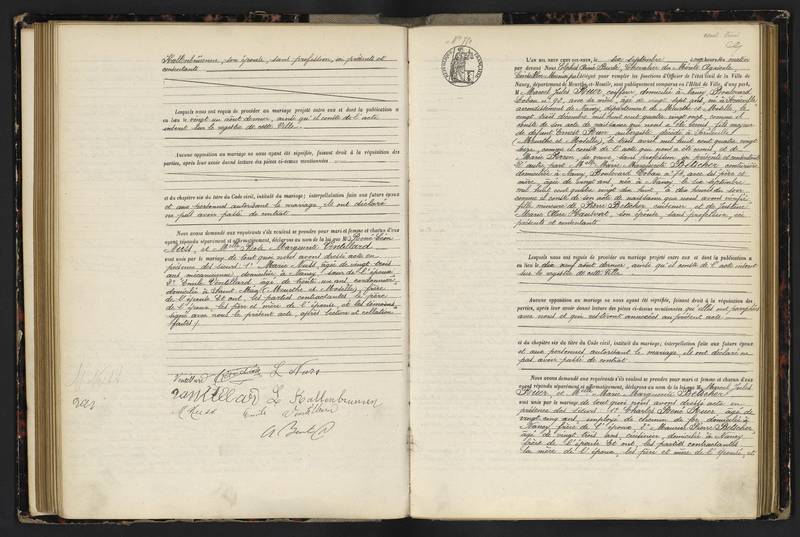 Kaltenbrünnen, son épouse, sans profession, ici présents et
consentants
Lesquels nous requis de procéder au mariage projeté entre eux et dont la publication a
eu lieu le vingt un août dernier, ainsi qu'il conste de l'acte
inscrit sur le registre de cette Ville.
Aucune opposition au mariage ne nous ayant été signifiée, faisant droit à la réquisition des
parties, après leur avoir donné lecture des pièces ci-dessus mentionnées
et du chapitre six du titre du Code civil, intitulé du mariage; interpellation faite aux futurs époux
et aux personnes autorisant le mariage, ils ont déclaré
ne pas avoir passé de contrat
Nous avons demandé aux requérants s'ils veulent se prendre pour mari et femme et chacun d'eux
ayant répondu séparément et affirmativement, déclarons au nom de la loi que Mr René Léon
et Melle Marguerite Ventillard
sont unis par le mariage de tout quoi avons dressé acte en
présence des sieurs 1° âgé de vingt trois
ans mécanicien, domicilié à Nancy, de l'époux,
2° Emile Ventillard, âgé de trente un ans, cordonnier,
domicilié à Saint Max (Meurthe et Moselle), frère
de l'épouse Et ont, les parties contractantes, le père
de l'époux, les père et mère de l'épouse, et les témoins,
signé avec nous le présent acte, après lecture et collation
faites /.
Ventillard
L. Kaltenbrunnen
Emile Ventillard
N°
L'AN MIL NEUF CENT DIX-NEUF, le six septembre à onze heures du matin
par devant Nous Chevalier du Mérite Agricole,
Conseiller Municipal délégué pour remplir les fonctions d'Officier de l'état civil de la Ville de
Nancy, département de Meurthe-et-Moselle, sont publiquement comparus en l'Hôtel de Ville, d'une part,
M. Marcel Jules coiffeur, domicilié à Nancy Boulevard
Lobau n° avec sa mère, âgé de vingt sept ans, né à
arrondissement de Nancy, département de Meurthe et Moselle, le
vingt trois décembre mil huit cent quatre vingt onze, comme il
conste de son acte de naissance qui nous a été remis, fils majeur
de défunt Ernest décédé à
(Meurthe et Moselle), le trois avril mil huit cent quatre vingt
comme il conste de l'acte qui nous a été remis, et de
Marie sa veuve, sans profession, ici présente et consentante
D'autre part, Melle Marie Marguerite Betscher couturière
domiciliée à Nancy Boulevard Lobau n° avec ses père et
mère, âgée de vingt ans, née à Nancy, le six septembre
mil huit cent quatre vingt dix huit, à dix heures du soir,
comme il conste de son acte de naissance que nous avons vérifié
fille mineure de Pierre Betscher, cuisinier, et de Justine
Marie son épouse, sans profession, ici
présents et consentants
Lesquels nous requis de procéder au mariage projeté entre eux et dont la publication a
eu lieu le dix neuf août dernier, ainsi qu'il conste de l'acte inscrit
sur le registre de cette Ville
Aucune opposition au mariage ne nous ayant été signifiée, faisant droit à la réquisition des
parties, après leur avoir donné lecture des pièces ci-dessus mentionnées qu'elles ont paraphées
avec nous et qui resteront annexées au présent acte
et du chapitre six du titre du Code civil, intitulé du mariage; interpellation faite aux futurs époux
et aux personnes autorisant le mariage, ils ont déclaré ne
pas avoir passé de contrat
Nous avons demandé aux requérants s'ils veulent se prendre pour mari et femme et chacun d'eux
ayant répondu séparément et affirmativement, déclarons au nom de la loi que Mr Marcel Jules
et Melle Marie Marguerite Betscher
sont unis par le mariage de tout quoi nous avons dressé acte en
présence des sieurs: 1° Charles René âgé de
vingt cinq ans, employé de chemin de fer, domicilié à
Nancy, frère de l'époux, 2° Maurice Pierre Betscher
âgé de vingt trois ans, cuisinier, domicilié à Nancy,
frère de l'épouse Et ont, les parties contractantes
la mère de l'époux, les père et mère de l'épouse, et